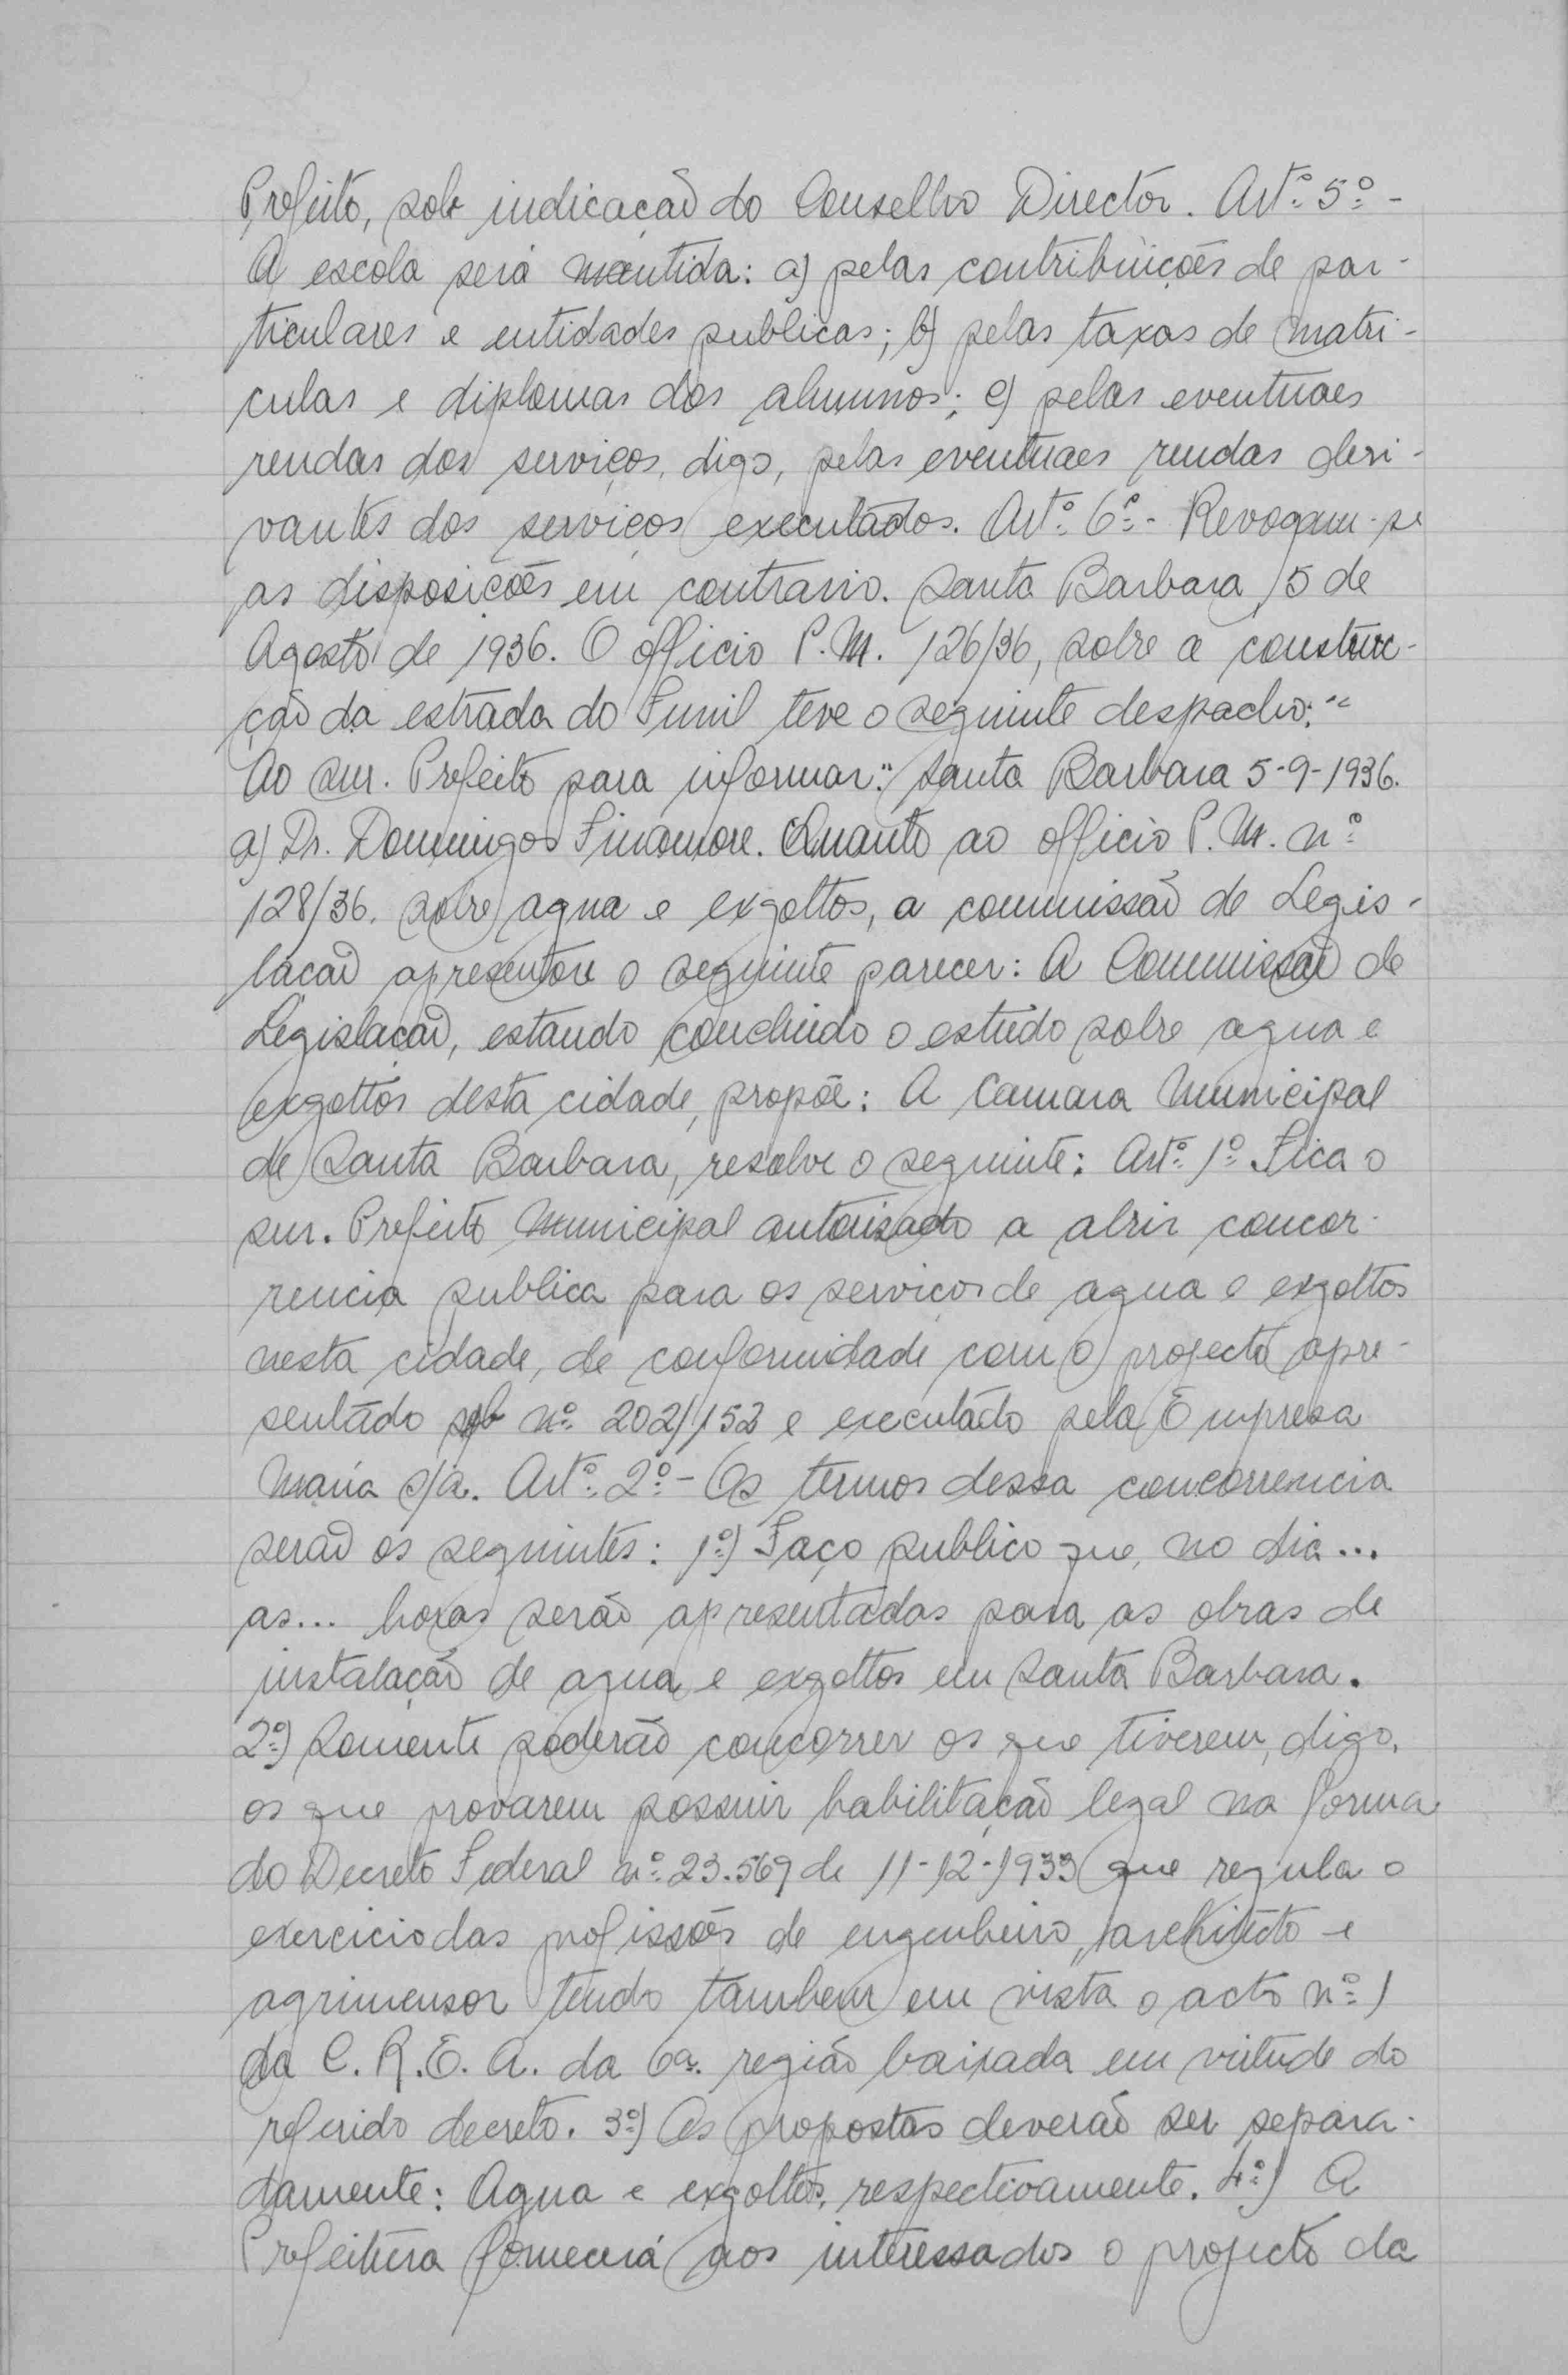 Prefeito, sob indicação do Conselho Director. Artº 5º -
A escola será mantida: a) pelas contribuições de par-
ticulares e entidades publicas; b) pelas taxas de matri-
culas e diplomas dos alumnos; c) pelas eventuaes
rendas dos serviços, digo, pelas eventuaes rendas deri-
vantes dos serviços executados. Artº 6º - Revogam-se
as disposições em contrario. Santa Barbara, 5 de
Agosto de 1936. O officio P.M. 126/36, sobre a construc-
ção da estrada do Funil teve o seguinte despacho: "
Ao snr. Prefeito para informar." Santa Barbara 5-9-1936.
a) Dr. Domingos Finamore. Quanto ao officio P.M. nº
128/36. sobre agua e exgottos, a commissão de Legis-
lação apresentou o seguinte parecer: A Commissão de
Legislação, estando concluido o estudo sobre agua e
exgottos desta cidade, propõe: A Camara Municipal
de Santa Barbara, resolve o seguinte: Artº 1º Fica o
snr. Prefeito Municipal autorisado a abrir concor-
rencia publica para os serviços de agua e exgottos
nesta cidade, de conformidade com o projecto apre-
sentado sob nº 202/152 e executado pela Empresa
s/a. Artº 2º - Os termos dessa concorrencia
serão os seguintes: 1º) Faço publico que, no dia...
as... horas serão apresentadas para as obras de
instalação de agua e exgottos em Santa Barbara.
2º) Somente poderão concorrer os que tiverem, digo,
os que provarem possuir habilitação legal na forma
do Decreto Federal nº 23.569 de 11-12-1933 que regula o
exercicio das profissões de engenheiro, architecto e
agrimensor tendo tambem em vista o acto nº 1
da C.R.E.A. da 6a. região baixada em virtude do
referido decreto. 3º) As propostas deverão ser separa-
damente: Agua e exgottos, respectivamente. 4º) A
Prefeitura fornecerá aos interessados o projecto da